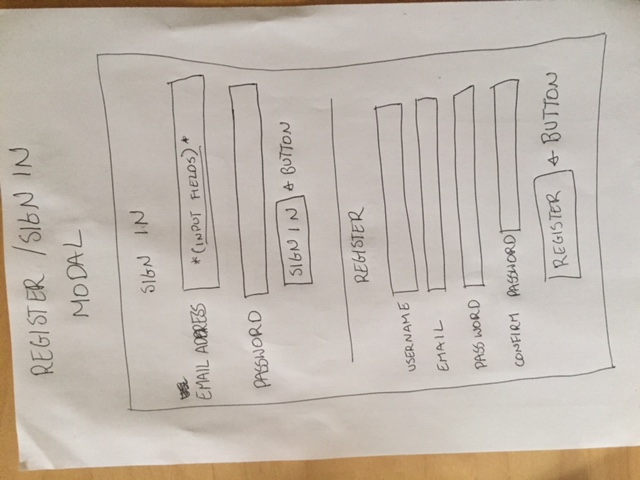 REGISTER / SIGN IN
MODAL
SIGN IN
EMAIL ADDRESS *(INPUT FIELDS)*
PASSWORD
SIGN IN BUTTON
REGISTER
USERNAME
EMAIL
PASSWORD
CONFIRM PASSWORD
REGISTER BUTTON